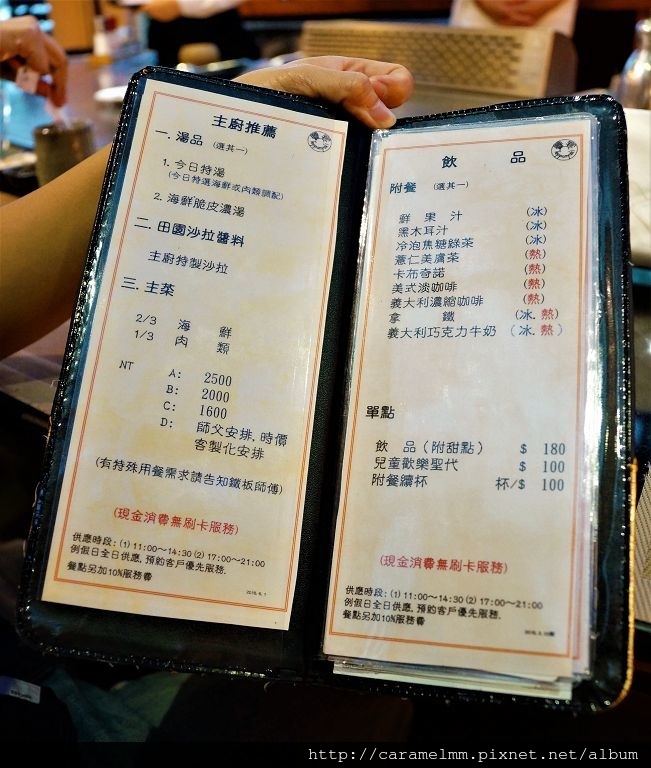 主廚推薦
一. 湯品 (選其一)
1. 今日特湯
(今日特選海鮮或肉類調配)
2. 海鮮脆皮濃湯
二. 田園沙拉醬料
主廚特製沙拉
三. 主菜
2/3 海 鮮
1/3 肉 類
NT A: 2500
B: 2000
C: 1600
D: 師父安排, 時價
客製化安排
(有特殊用餐需求請告知鐵板師傅)
(現金消費無刷卡服務)
供應時段: (1) 11:00～14:30 (2) 17:00～21:00
例假日全日供應, 預約客戶優先服務.
餐點另加10%服務費
飲 品
附餐 (選其一)
鮮 果 汁 (冰)
黑木耳汁 (冰)
冷泡焦糖綠茶 (冰)
薏仁美膚茶 (熱)
卡布奇諾 (熱)
美式淡咖啡 (熱)
義大利濃縮咖啡 (熱)
拿 鐵 (冰. 熱)
義大利巧克力牛奶 (冰. 熱)
單點
飲 品 (附甜點) $ 180
兒童歡樂聖代 $ 100
附餐續杯 杯/$ 100
(現金消費無刷卡服務)
供應時段: (1) 11:00～14:30 (2) 17:00～21:00
例假日全日供應, 預約客戶優先服務.
餐點另加10%服務費
http://caramelmm.pixnet.net/album